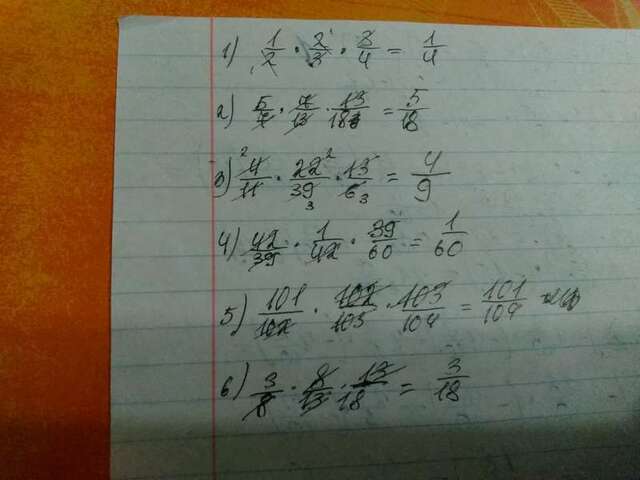 1) 1/2 · 2/3 · 3/4 = 1/4
2) 5/7 · 7/13 · 13/18 = 5/18
3) 4/11 · 22/39 · 13/6 = 4/9
4) 42/39 · 1/42 · 39/60 = 1/60
5) 101/102 · 102/103 · 103/104 = 101/104
6) 3/8 · 8/13 · 13/18 = 3/18